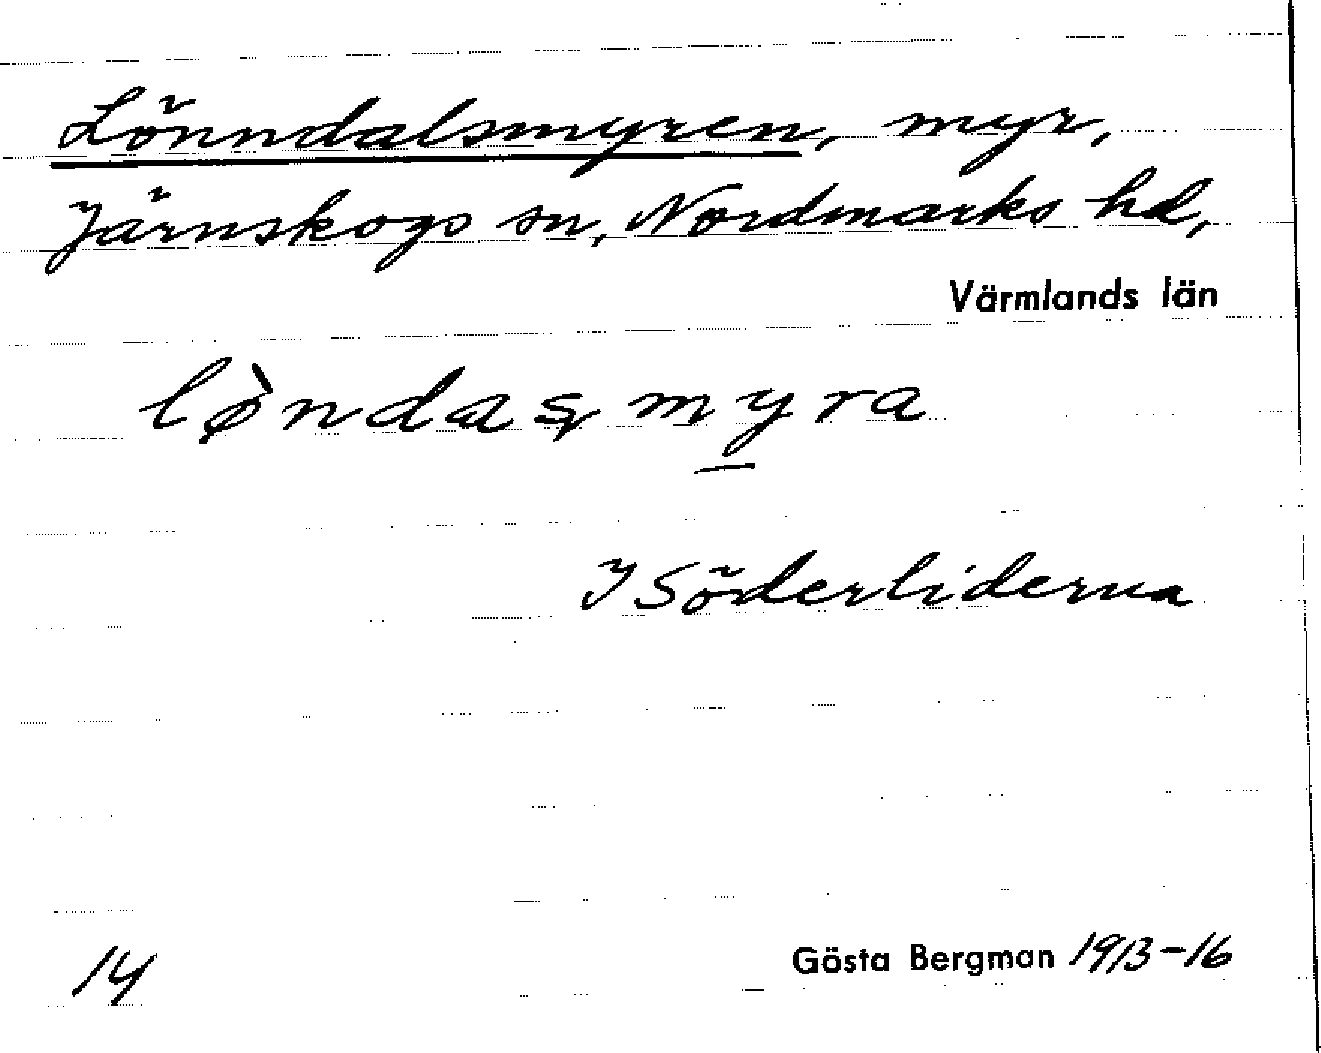 Lönndalsmyren, myr,
Järnskogs sn, Nordmarks hd,
Värmlands län
lø̀ndaʂmyra
I Söderliderna
14
Gösta Bergman 1913-16